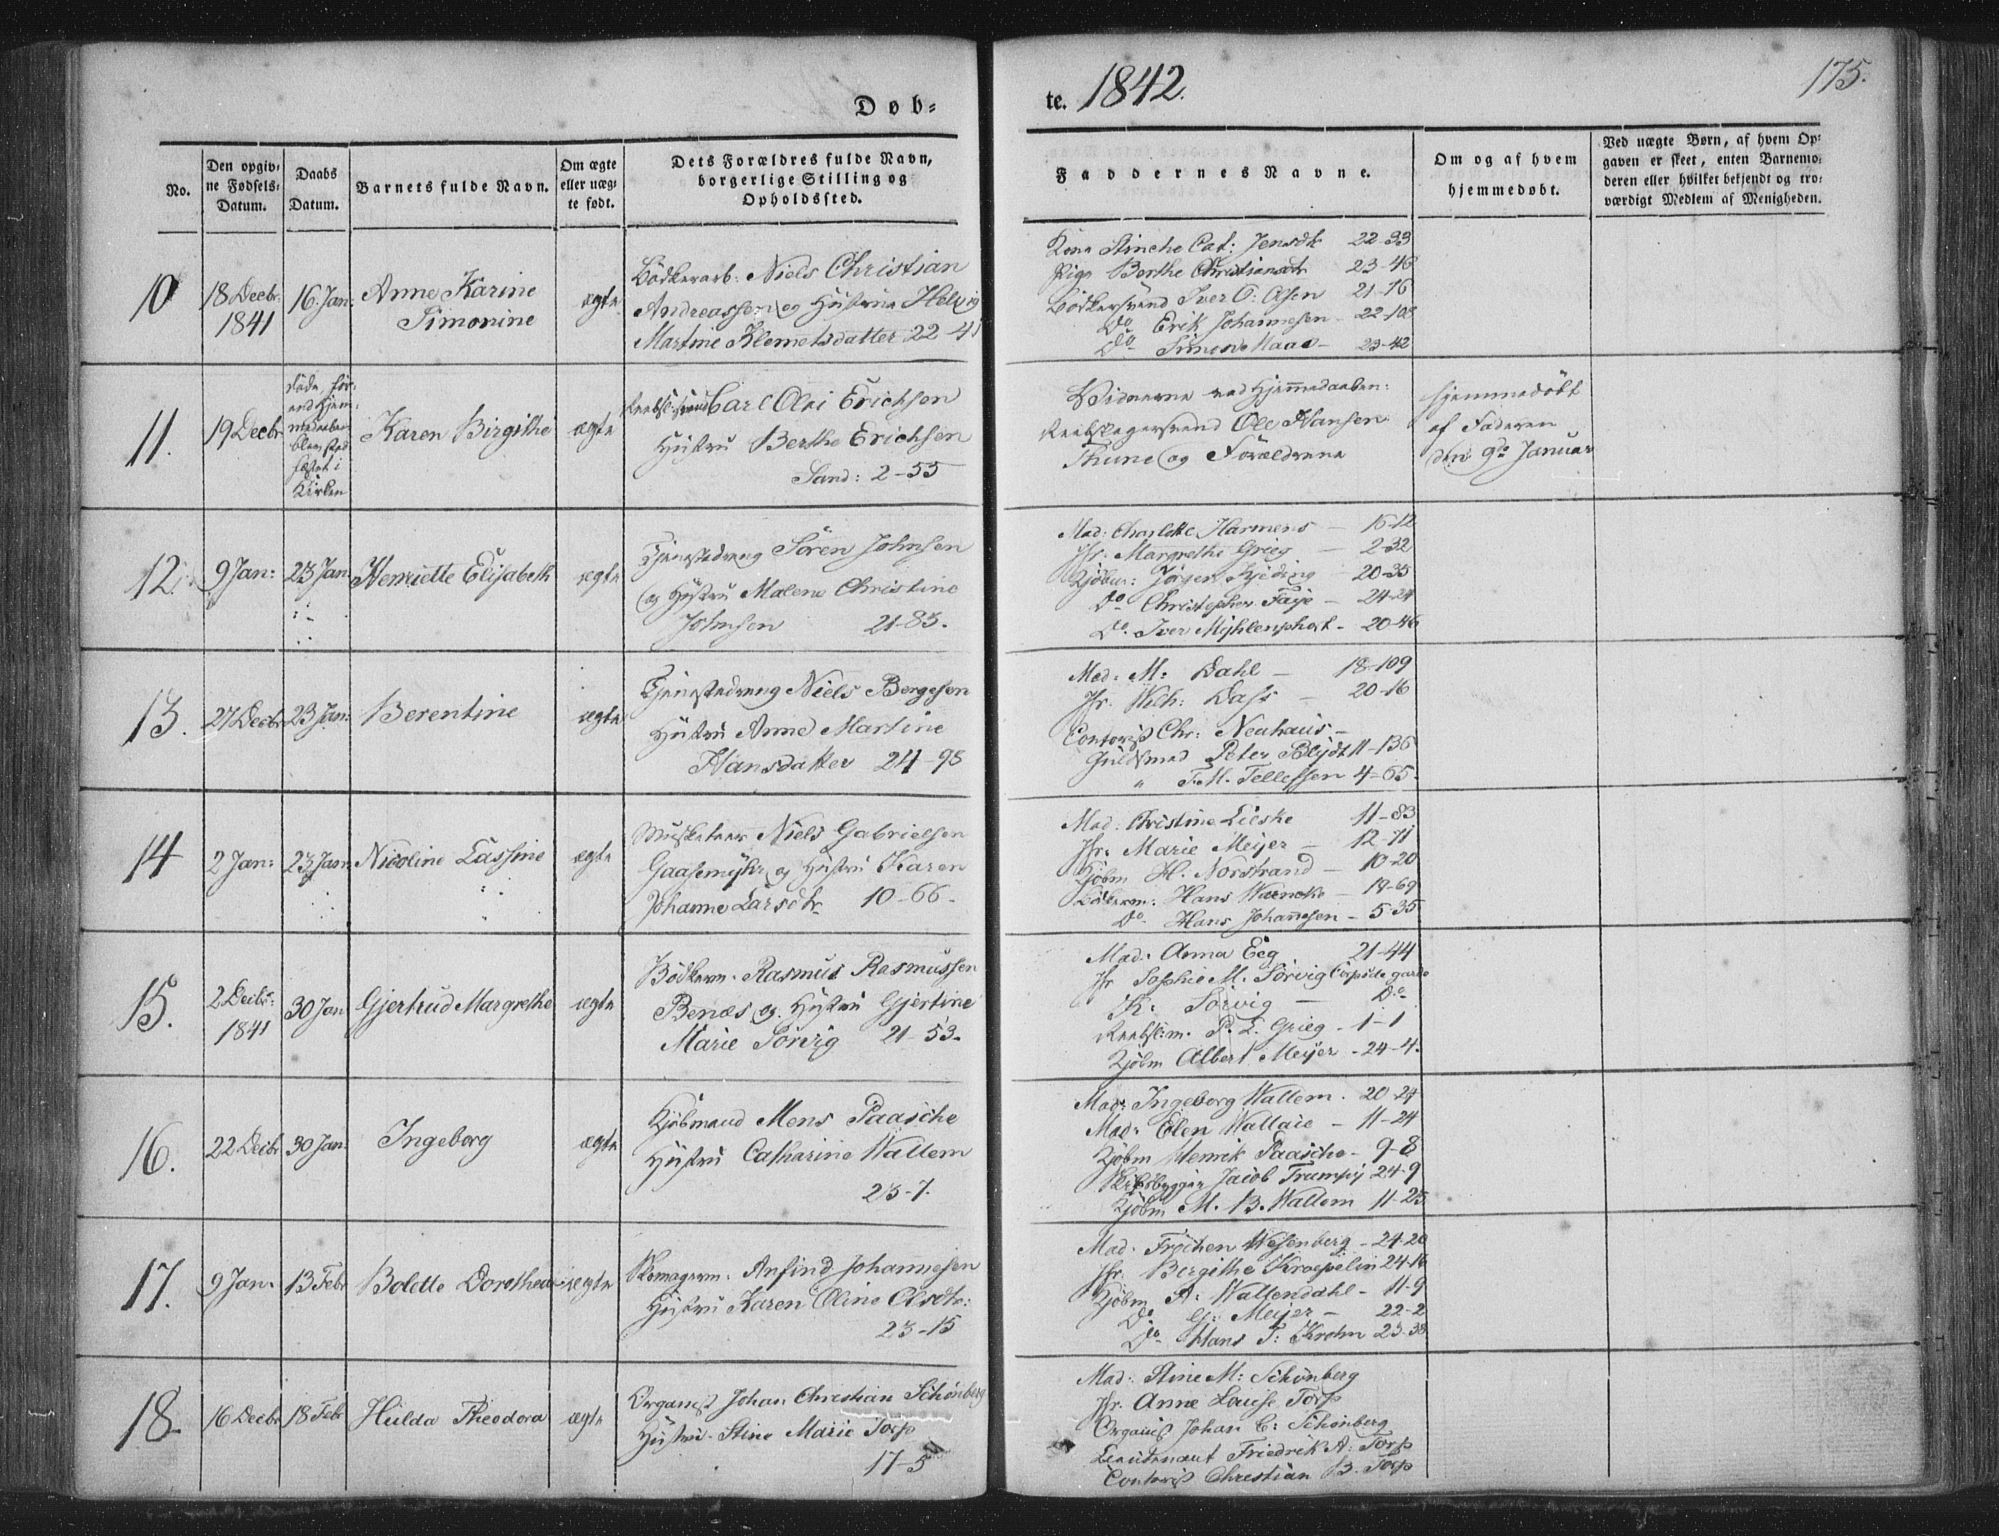 Døb=
te. 1842.
175.
No.
Den opgiv=
ne Fødsels=
Datum.
Daabs
Datum.
Barnets fulde Navn.
Om ægte
eller uæg=
te født.
Dets Forældres fulde Navn,
borgerlige Stilling og
Opholdssted.
Faddernes Navne.
Om og af hvem
hjemmedøbt.
Ved uægte Børn, af hvem Op=
gaven er skeet, enten Barnemo=
deren eller hvilket bekjendt og tro=
værdigt Medlem af Menigheden.
10
18 Decbr.
1841
16. Jan:
Anne Karine
Simonine
ægte
Bödkerarb: Niels Christian
Andreassen og Hustrue Helvig
Martine Klemetsdatter 22-41
Kone Stinche Cat: Jensdt 22-33
Pige Berthe Christiansdtr 23-46
Bödkersvend Iver O: Olsen 21-76
Do Erik Johannesen - 22-103
Do Simon Haae - 23-42
11.
19 Decbr
döde för=
end Hjem=
medaaben
blev stad
fæstet i
Kirken
Karen Birgithe
ægte
Reebsl:svend Carl Olai Erichsen
Hustru Berthe Erichsen
Sand: 2-55
Vidnerne ved Hjemmedaaben:
Reebslagersvend Ole Hansen
Thune og Forældrene
hjemmedöbt
af Faderen
den 9de Januar
12.
9 Jan:
23 Jan
Henriette Elisabeth
ægte
Tjenestedreng Sören Johnsen
og Hustru Malene Christine
Johnsen 21-83.
Mad: Charlotte Harmens - 16-12
Jfr: Margrethe Grieg - 2-32
Kjöbm: Jörgen Kjeding - 20-35
Do Christopher Faye - 24-24
Do. Iver Myhlenphort - 20-46
13.
27 Decbr
23 Jan:
Berentine
ægte
Tjenestedreng Niels Bergesen
Hustru Anne Martine
Hansdatter 24-98
Mad: M: Dahl - 18-109
Jfr. Wilh: Dass - 20-16
Contorist Chr: Neuhaus -
Guldsmed Peter Blydt 11-136
" T. M. Tellefsen 4-65.
14
2 Jan:
23 Jan
Nicoline Lassine
ægte
Musketeer Niels Gabrielsen
Gaasemyhr og Hustru Karen
Johanne Larsdtr 10-66-
Mad: Christine Lieske 11-83
Jfr: Marie Meijer - 12-71
Kjöbm H. Norstrand - 10-20
Bödkerm: Hans Warncke - 19-69
Do Hans Johannesen - 5-35
15.
2 Decbr:
1841
30 Jan
Gjertrud Margrethe
ægte
Bödkerm. Rasmus Rasmussen
Benæs og Hustru Gjertine
Marie Sörvig 21-53.
Mad: Anna Eeg 21-44
Jfr Sophie M. Sörvig Corpsde garde
K: Sörvig - Do
Reebsl:m. P. E. Grieg - 1-1
Kjöbm Albert Meijer - 24-4.
16.
22 Decbr
30 Jan
Ingeborg
ægte
Kjöbmand Mens Paasche
Hustru Catharine Wallem
23-7.
Mad: Ingeborg Wallem. 20-24
Mad: Elen Wallace - 11-24
Kjöbm Henrik Paasche - 9-8
Skibsbygger Jacob Trumpij 24-9
Kjöbm M. B. Wallem 11-25
17.
9 Jan.
13 Febr
Bolette Dorothea
ægte
Skomagerm. Anfind Johannesen
Hustru Karen Oline Olsdtr:
23-15
Mad: Fröchen Wesenberg - 24-20
Jfr. Bergithe Kroepelin 24-16
Kjöbm A: Wallendahl - 11-9
Do G: Meijer - 22-2
Do Hans T: Krohn 23-38
18.
16 Decbr
18 Febr
Hulda Theodora
ægte
Organist Johan Christian Schönberg
Hustru. Stine Marie Torp
17-5
Mad: Stine M: Schönberg
Jfr. Anne Louise Torp
Organist Johan C: Schönberg
Lieutenant Friedrik A: Torp
Contorist Christian B. Torp